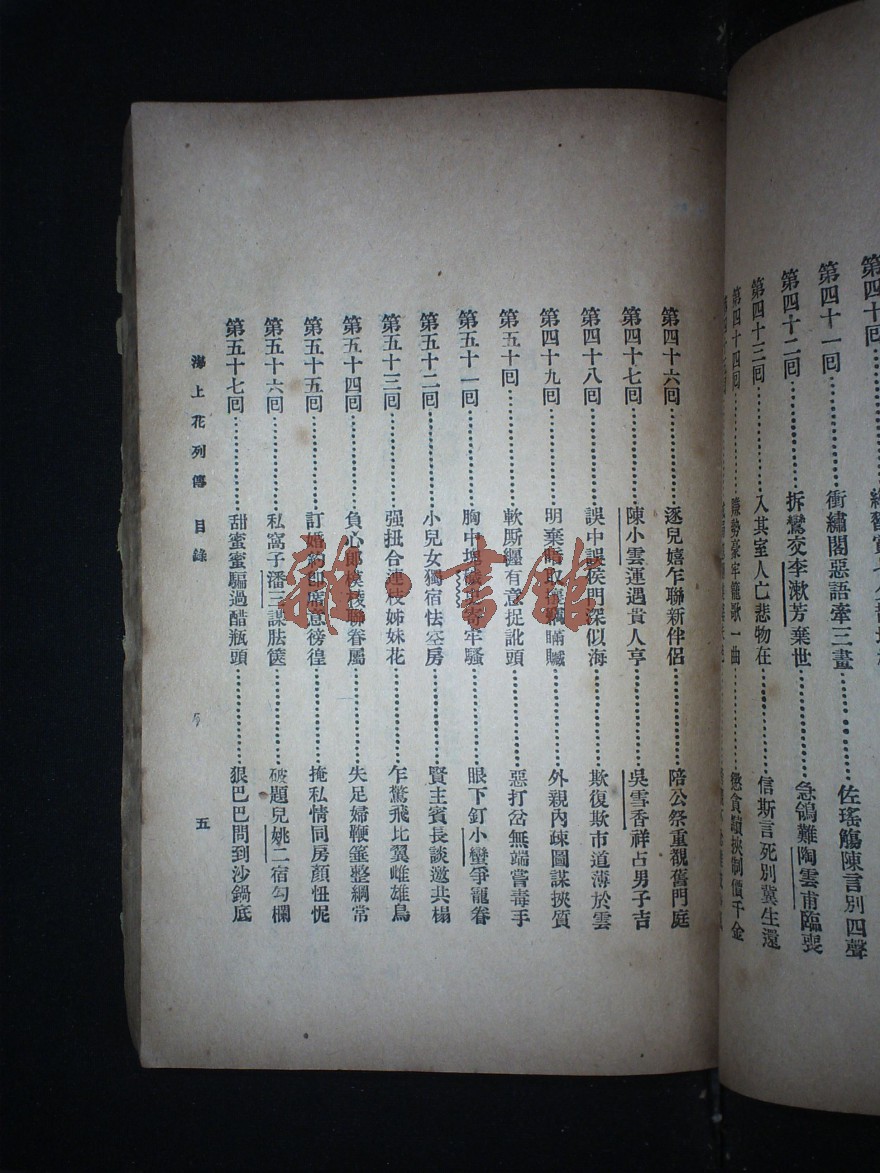 第四十回
第四十一回 衝繡閣惡語牽三畫 佐瑤觴陳言別四聲
第四十二回 拆鸞交李漱芳棄世 急鴒難陶雲甫臨喪
第四十三回 入其室人亡悲物在 信斯言死別冀生還
第四十四回 賺勢豪牢籠歌一曲 懲貪黷挾制價千金
第四十六回 逐兒嬉乍聯新伴侶 陪公祭重覩舊門庭
第四十七回 陳小雲運遇貴人亨 吳雪香祥占男子吉
第四十八回 誤中誤侯門深似海 欺復欺市道薄於雲
第四十九回 明棄暗取攘竊瞞贓 外親內疎圖謀挾質
第五十回 軟厮纏有意捉訛頭 惡打岔無端嘗毒手
第五十一回 胸中塊 寄牢騷 眼下釘小蠻爭寵眷
第五十二回 小兒女獨宿怯空房 賢主賓長談邀共榻
第五十三回 强扭合連枝姊妹花 乍驚飛比翼雌雄鳥
第五十四回 負心郎模棱聯眷屬 失足婦鞭箠整綱常
第五十五回 訂婚約即席意徬徨 掩私情同房顏忸怩
第五十六回 私窩子潘三謀胠篋 破題兒姚二宿勾欄
第五十七回 甜蜜蜜騙過醋瓶頭 狠巴巴問到沙鍋底
海上花列傳 目錄
五
雜·書館